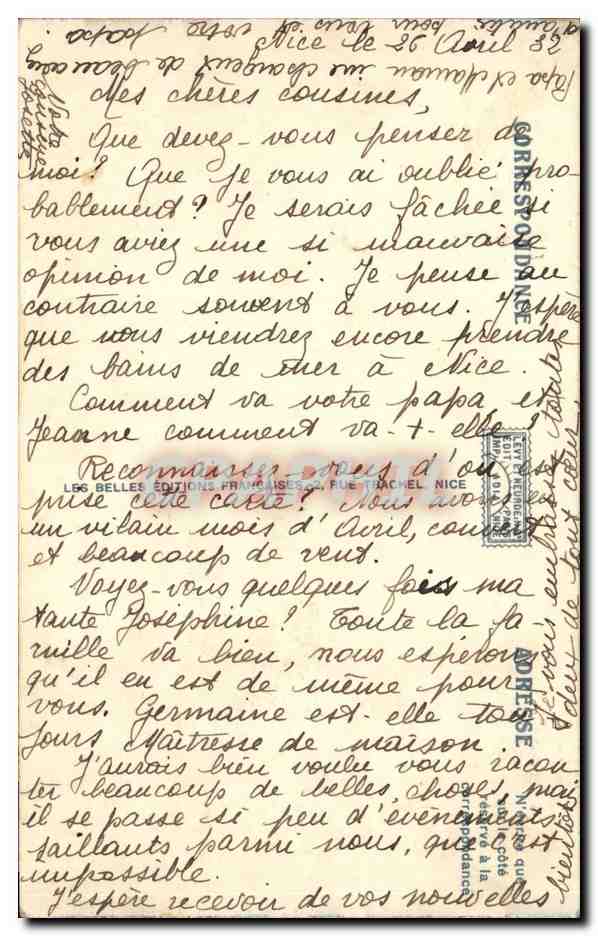 Nice le 26 Avril 32
Mes chères cousines,
Que devez-vous penser de
moi? Que je vous ai oublié pro-
bablement? Je serais fâchée si
vous aviez une si mauvaise
opinion de moi. Je pense au
contraire souvent à vous. J'espère
que vous viendrez encore prendre
des bains de mer à Nice.
Comment va votre papa, et
Jeanne comment va-t-elle?
Reconnaissez-vous d'où est
prise cette carte? Nous avons eu
un vilain mois d'Avril, couvert
et beaucoup de vent.
Voyez-vous quelques fois ma
tante Joséphine? Toute la fa-
mille va bien, nous espérons
qu'il en est de même pour
vous. Germaine est-elle tou
jours Maîtresse de maison.
J'aurais bien voulu vous racon
ter beaucoup de belles choses, mais
il se passe si peu d'évènements
saillants parmi nous, que c'est
impossible.
J'espère recevoir de vos nouvelles
bientôt
Je vous embrasse toutes
deux de tout cœur.
Votre
cousine
Josette
Papa et Maman me chargent de beaucoup
d'amitiés pour vous et votre papa.
CORRESPONDANCE
ADRESSE
LES BELLES ÉDITIONS FRANÇAISES, 2, RUE TRACHEL, NICE
LÉVY ET NEURDEIN
N'écrire que
sur le côté
réservé à la
correspondance